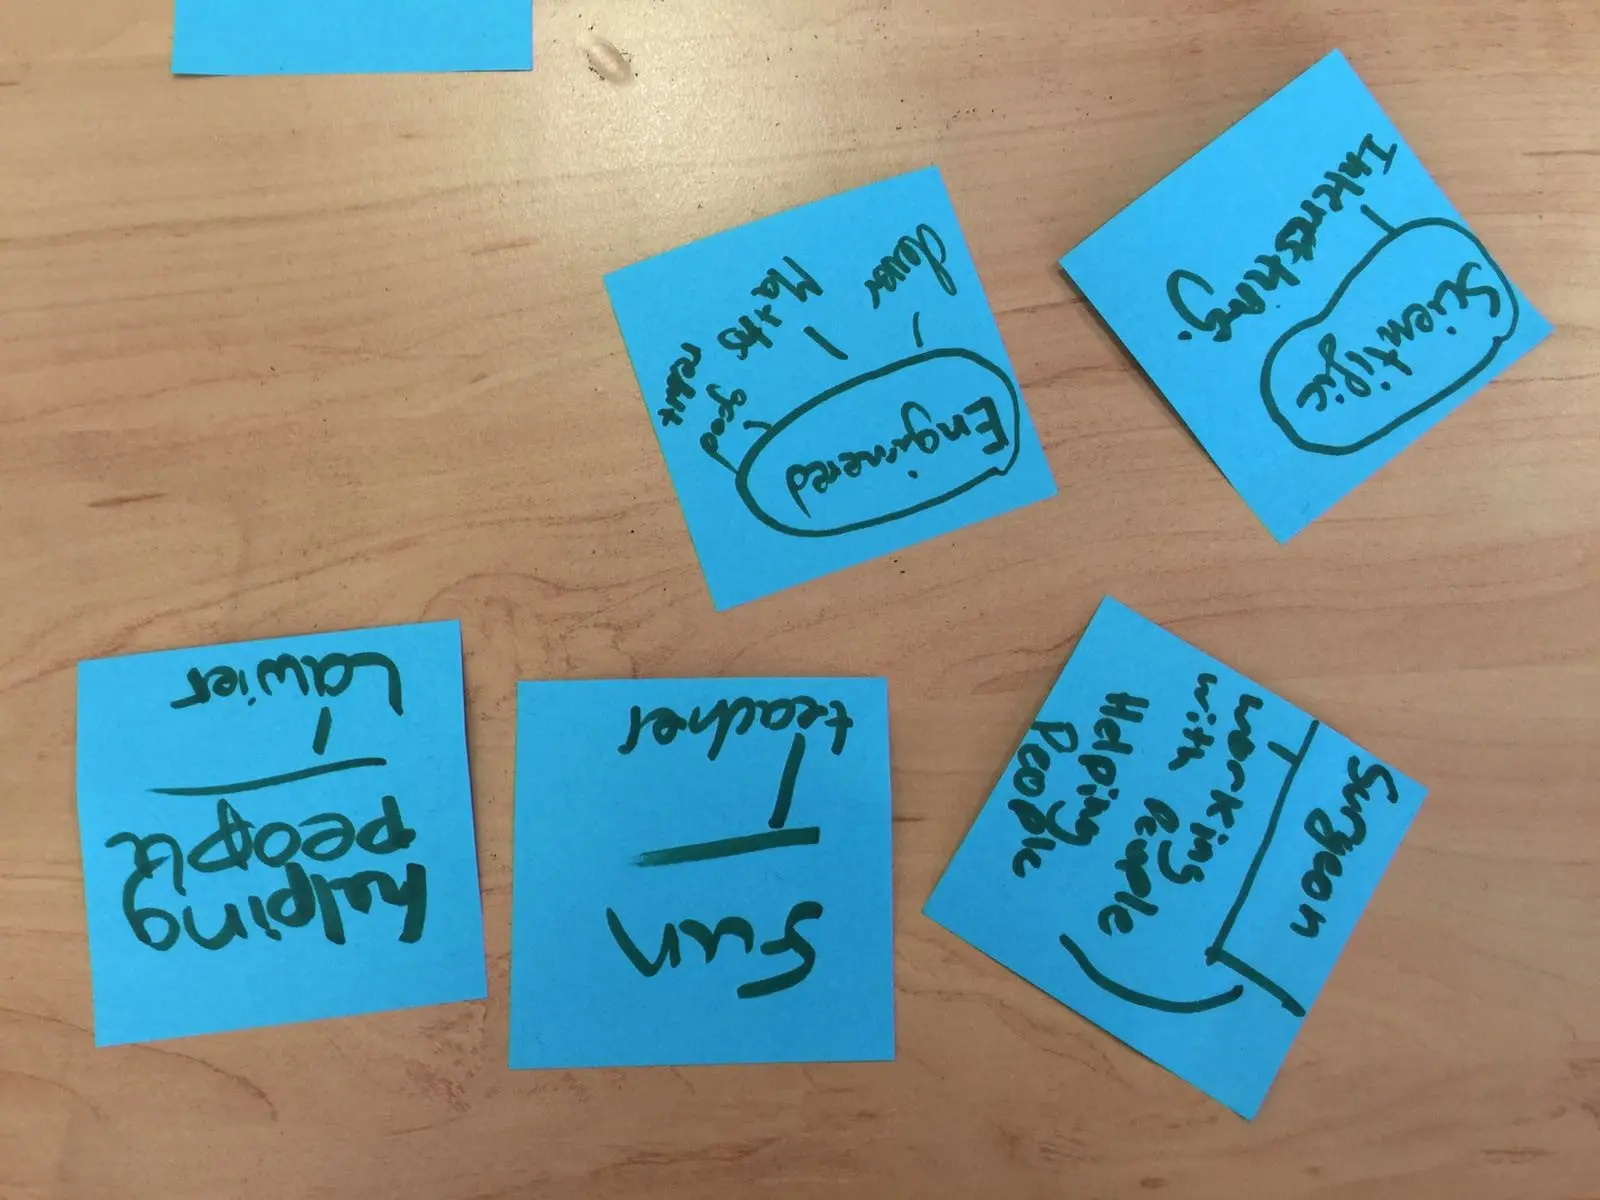 Scientific
Interesting.
Engineered
clever
Maths
good
relax
Lawier
helping
people
teacher
fun
Surgeon
working
with people
Helping
People